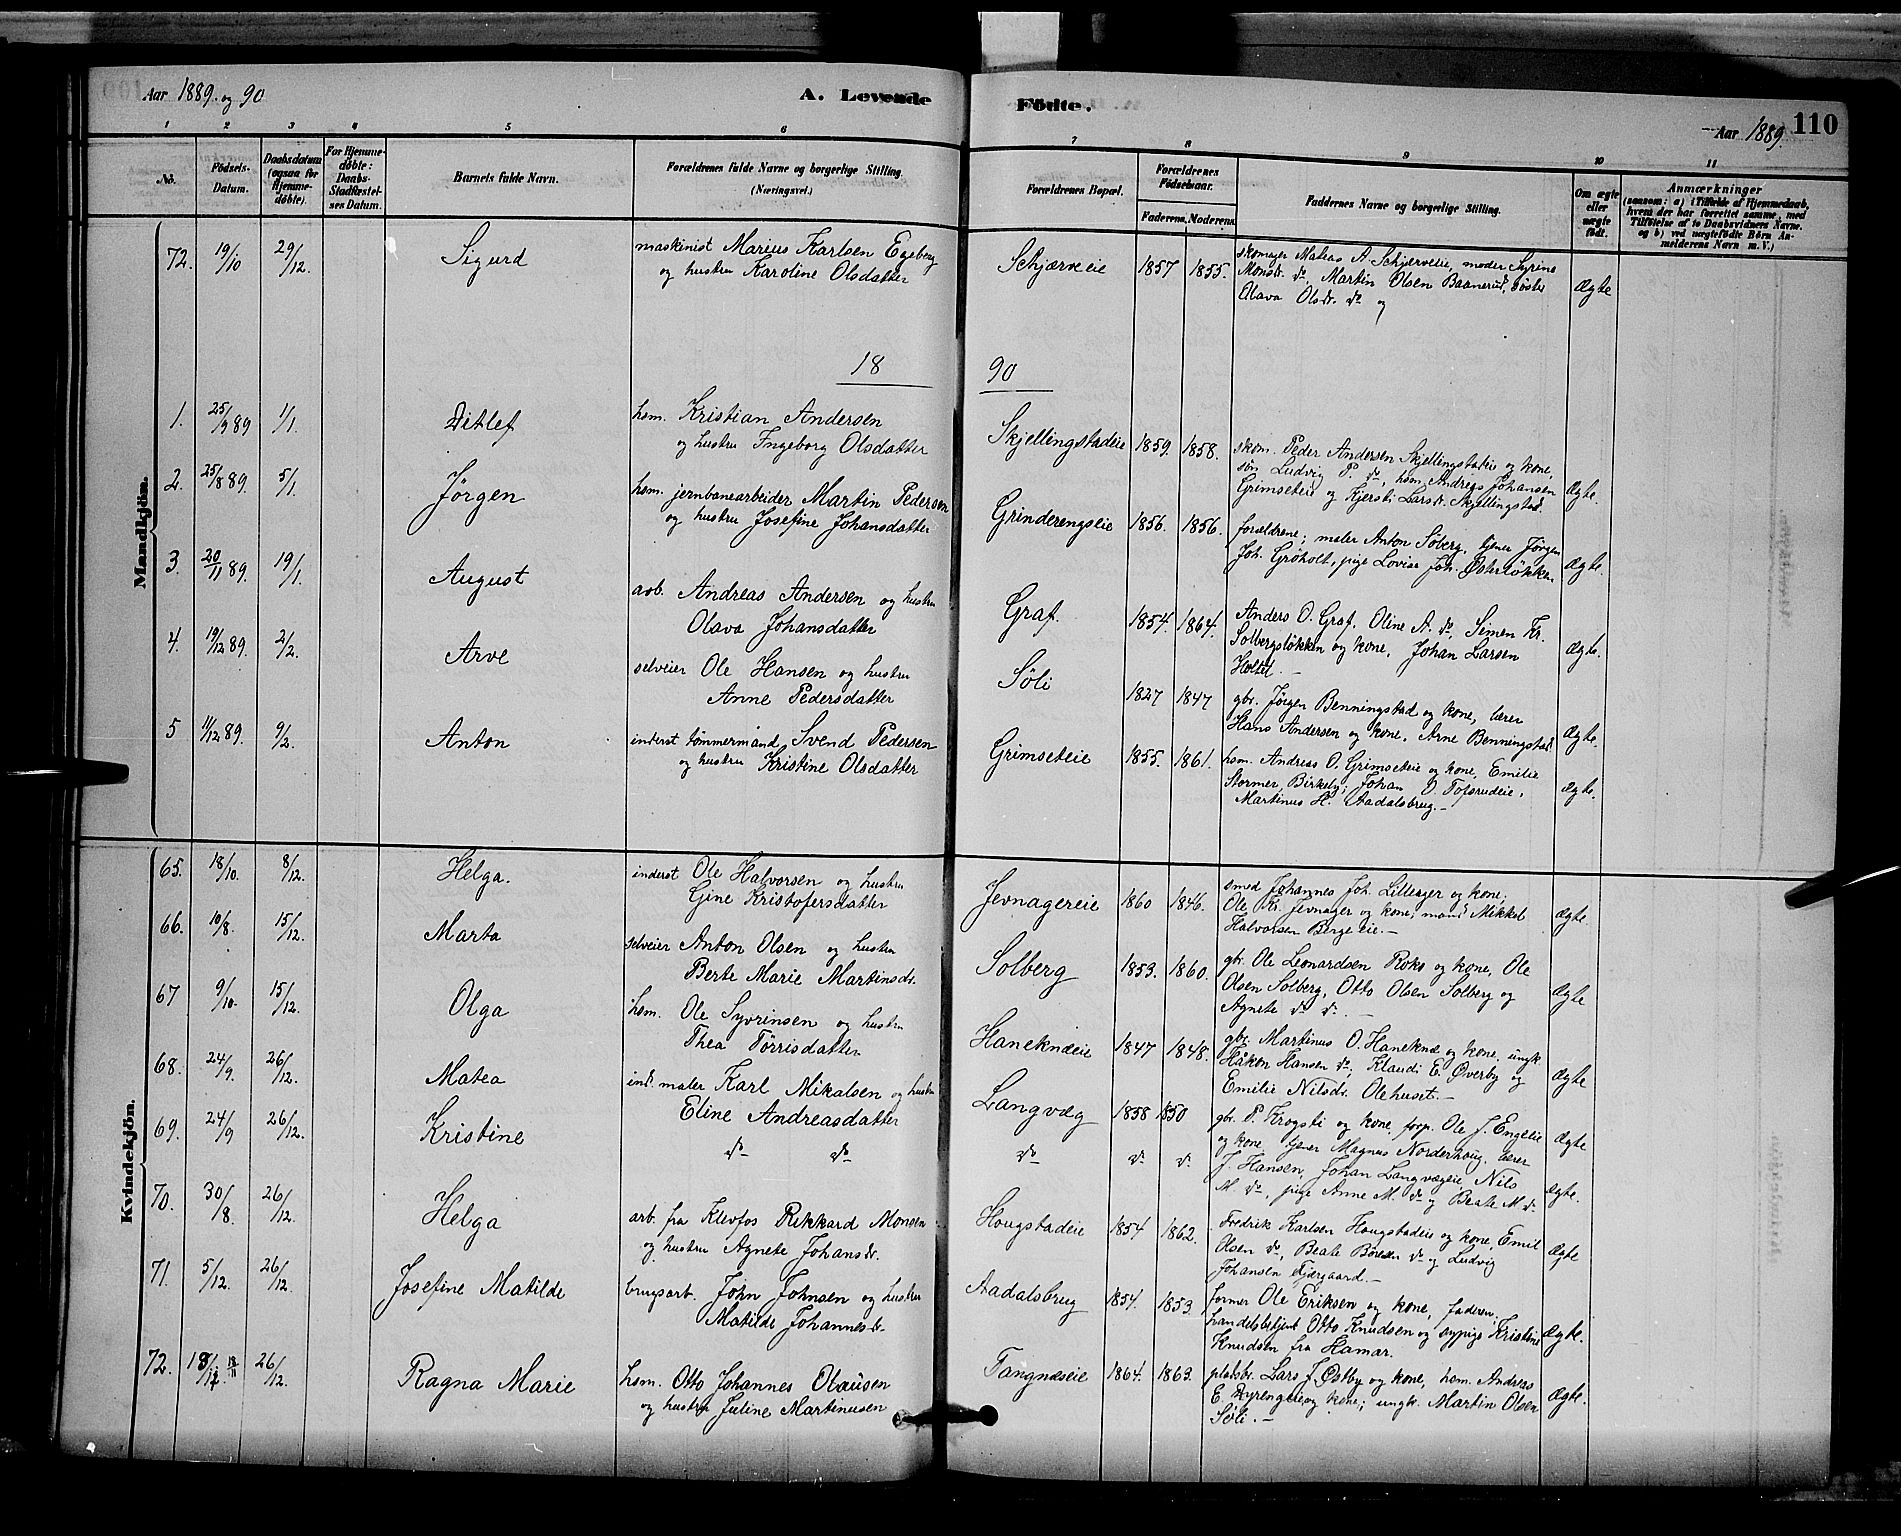 Aar 1889 og 90
A. Levende
Födte.
Aar 1889.
110
1 2 3 4 5 6 7 8 9 10 11
No.
Födsels-Datum.
Daabsdatum (ogsaa for Hjemme-döbte).
For Hjemme-döbte: Daabs-Stadfæstel-ses Datum.
Barnets fulde Navn.
Forældrenes fulde Navne og borgerlige Stilling. (Næringsvei.)
Forældrenes Bopæl.
Forældrenes Födselsaar.
Faderens. Moderens.
Faddernes Navne og borgerlige Stilling.
Om ægte eller uægte födt.
Anmærkninger
(saasom: a) i Tilfælde af Hjemmedaab,
hvem der har forrettet samme, med
Tilföielse af to Daabsvidners Navne.
og b) ved uægtefödte Börn An-
melderens Navn m. V.)
Mandkjön.
72. 19/10 29/12. Sigurd maskinist Marius Karlsen Egeberg
og hustru Karoline Olsdatter
Schjærveie 1857 1855. skomager Mateas A. Schjærveie, moder Syrine
Monsdr. do, Martin Olsen Baanerud, söster
Olava Olsdr. do og
Ægte
18 90
1. 25/9 89 1/1. Ditlef hsm. Kristian Andersen
og hustru Ingeborg Olsdatter
Skjellingstadeie 1859. 1858. skom. Peder Andersen Skjellingstadeie og kone,
sön Ludvig P. do, hsm. Andreas Johansen
Grimseteie og Kjersti Larsdr. Skjellingstad.
Ægte.
2. 25/8 89. 5/1. Jørgen hsm. jernbanearbeider Martin Pedersen
og hustru Josefine Johansdatter
Grinderengseie 1856. 1856. forældrene; maler Anton Söberg, tjener Jörgen
Joh. Gröholt, pige Lovise Joh. Østerlökka.
Ægte.
3. 20/11 89. 19/1. August arb. Andreas Andersen og hustru
Olava Johansdatter
Graf. 1854. 1864. Anders O. Graf, Oline A. do, Simen Kr.
Solbergslökken og kone, Johan Larsen
Holtet.
Ægte.
4. 19/12 89. 2/2. Arve selveier Ole Hansen og hustru
Anne Pedersdatter
Söli 1827 1847 gbr. Jörgen Benningstad og kone, lærer
Hans Andersen og kone, Arne Benningstad.
Ægte.
5 11/12 89. 9/2. Anton inderst tömmermand Svend Pedersen
og hustru Kristine Olsdatter
Grimseteie 1855. 1861. hsm. Andreas O. Grimseteie og kone, Emilie
Stormer, Birkely; Johan O. Tofsrudeie,
Martinus H. Aadalsbrug.
Ægte.
Kvindekjön.
65. 18/10. 8/12. Helga. inderst Ole Halvorsen og hustru
Gine Kristofersdatter
Jevnagereie 1860 1846. smed Johannes Joh. Lilleager og kone;
Ole Kr. Jevnager og kone, mand Mikkel
Halvorsen Bergeeie.
Ægte.
66. 10/8. 15/12. Marta selveier Anton Olsen og hustru
Berte Marie Martinsdr.
Solberg 1853. 1860. gbr. Ole Leonardsen Roko og kone, Ole
Olsen Solberg, Otto Olsen Solberg og
Agnete do do.
Ægte
67 9/10. 15/12. Olga hsm. Ole Syvrinsen og hustru
Thea Törrisdatter
Hanekneeie 1847 1848. gbr. Martinus O. Hanekne og kone, ungk.
Håkon Hansen do, Klaudi E. Øverby og
Emilie Nilsdr. Olehuset.
Ægte
68. 24/9. 26/12. Matea ind. maler Karl Mikalsen og hustru
Eline Andreasdatter
Langvæg 1858 1850 gbr. P. Krogsti og kone, forp. Ole J. Engelie
og kone, tjener Magnus Norderhoug, lærer
Ægte
69. 24/9 26/12. Kristine do do
do do do J. Hansen, Johan Langvægeie, Nils
M. do, pige Anne M. do og Beate M. do
Ægte.
70. 30/8. 26/12. Helga arb. fra Klevfos Rikkard Monsen
og hustru Agnete Johansdr.
Hougstadeie 1854 1862. Fredrik Karlsen Hougstadeie og kone, Emil
Olsen do, Beate Börsen do og Ludvig
Johansen Fjærgaard.
Ægte
71. 5/12. 26/12. Josefine Matilde brugsarb. John Johnsen og hustru
Matilde Johannesdr.
Aadalsbrug 1854. 1853. former Ole Eriksen og kone, faderen,
handelsbetjent Otto Knudsen og sypige Kristine
Knudsen fra Hamar.
Ægte.
72. 18/11. 26/12. Ragna Marie hsm. Otto Johannes Olausen
og hustru Juline Martinusen
Tangneseie 1864. 1863. pladsbr. Lars J. Østby og kone, hsm. Andreas
E. Myrengeie og kone; ungk. Martin Olsen
Söli.
Ægte.